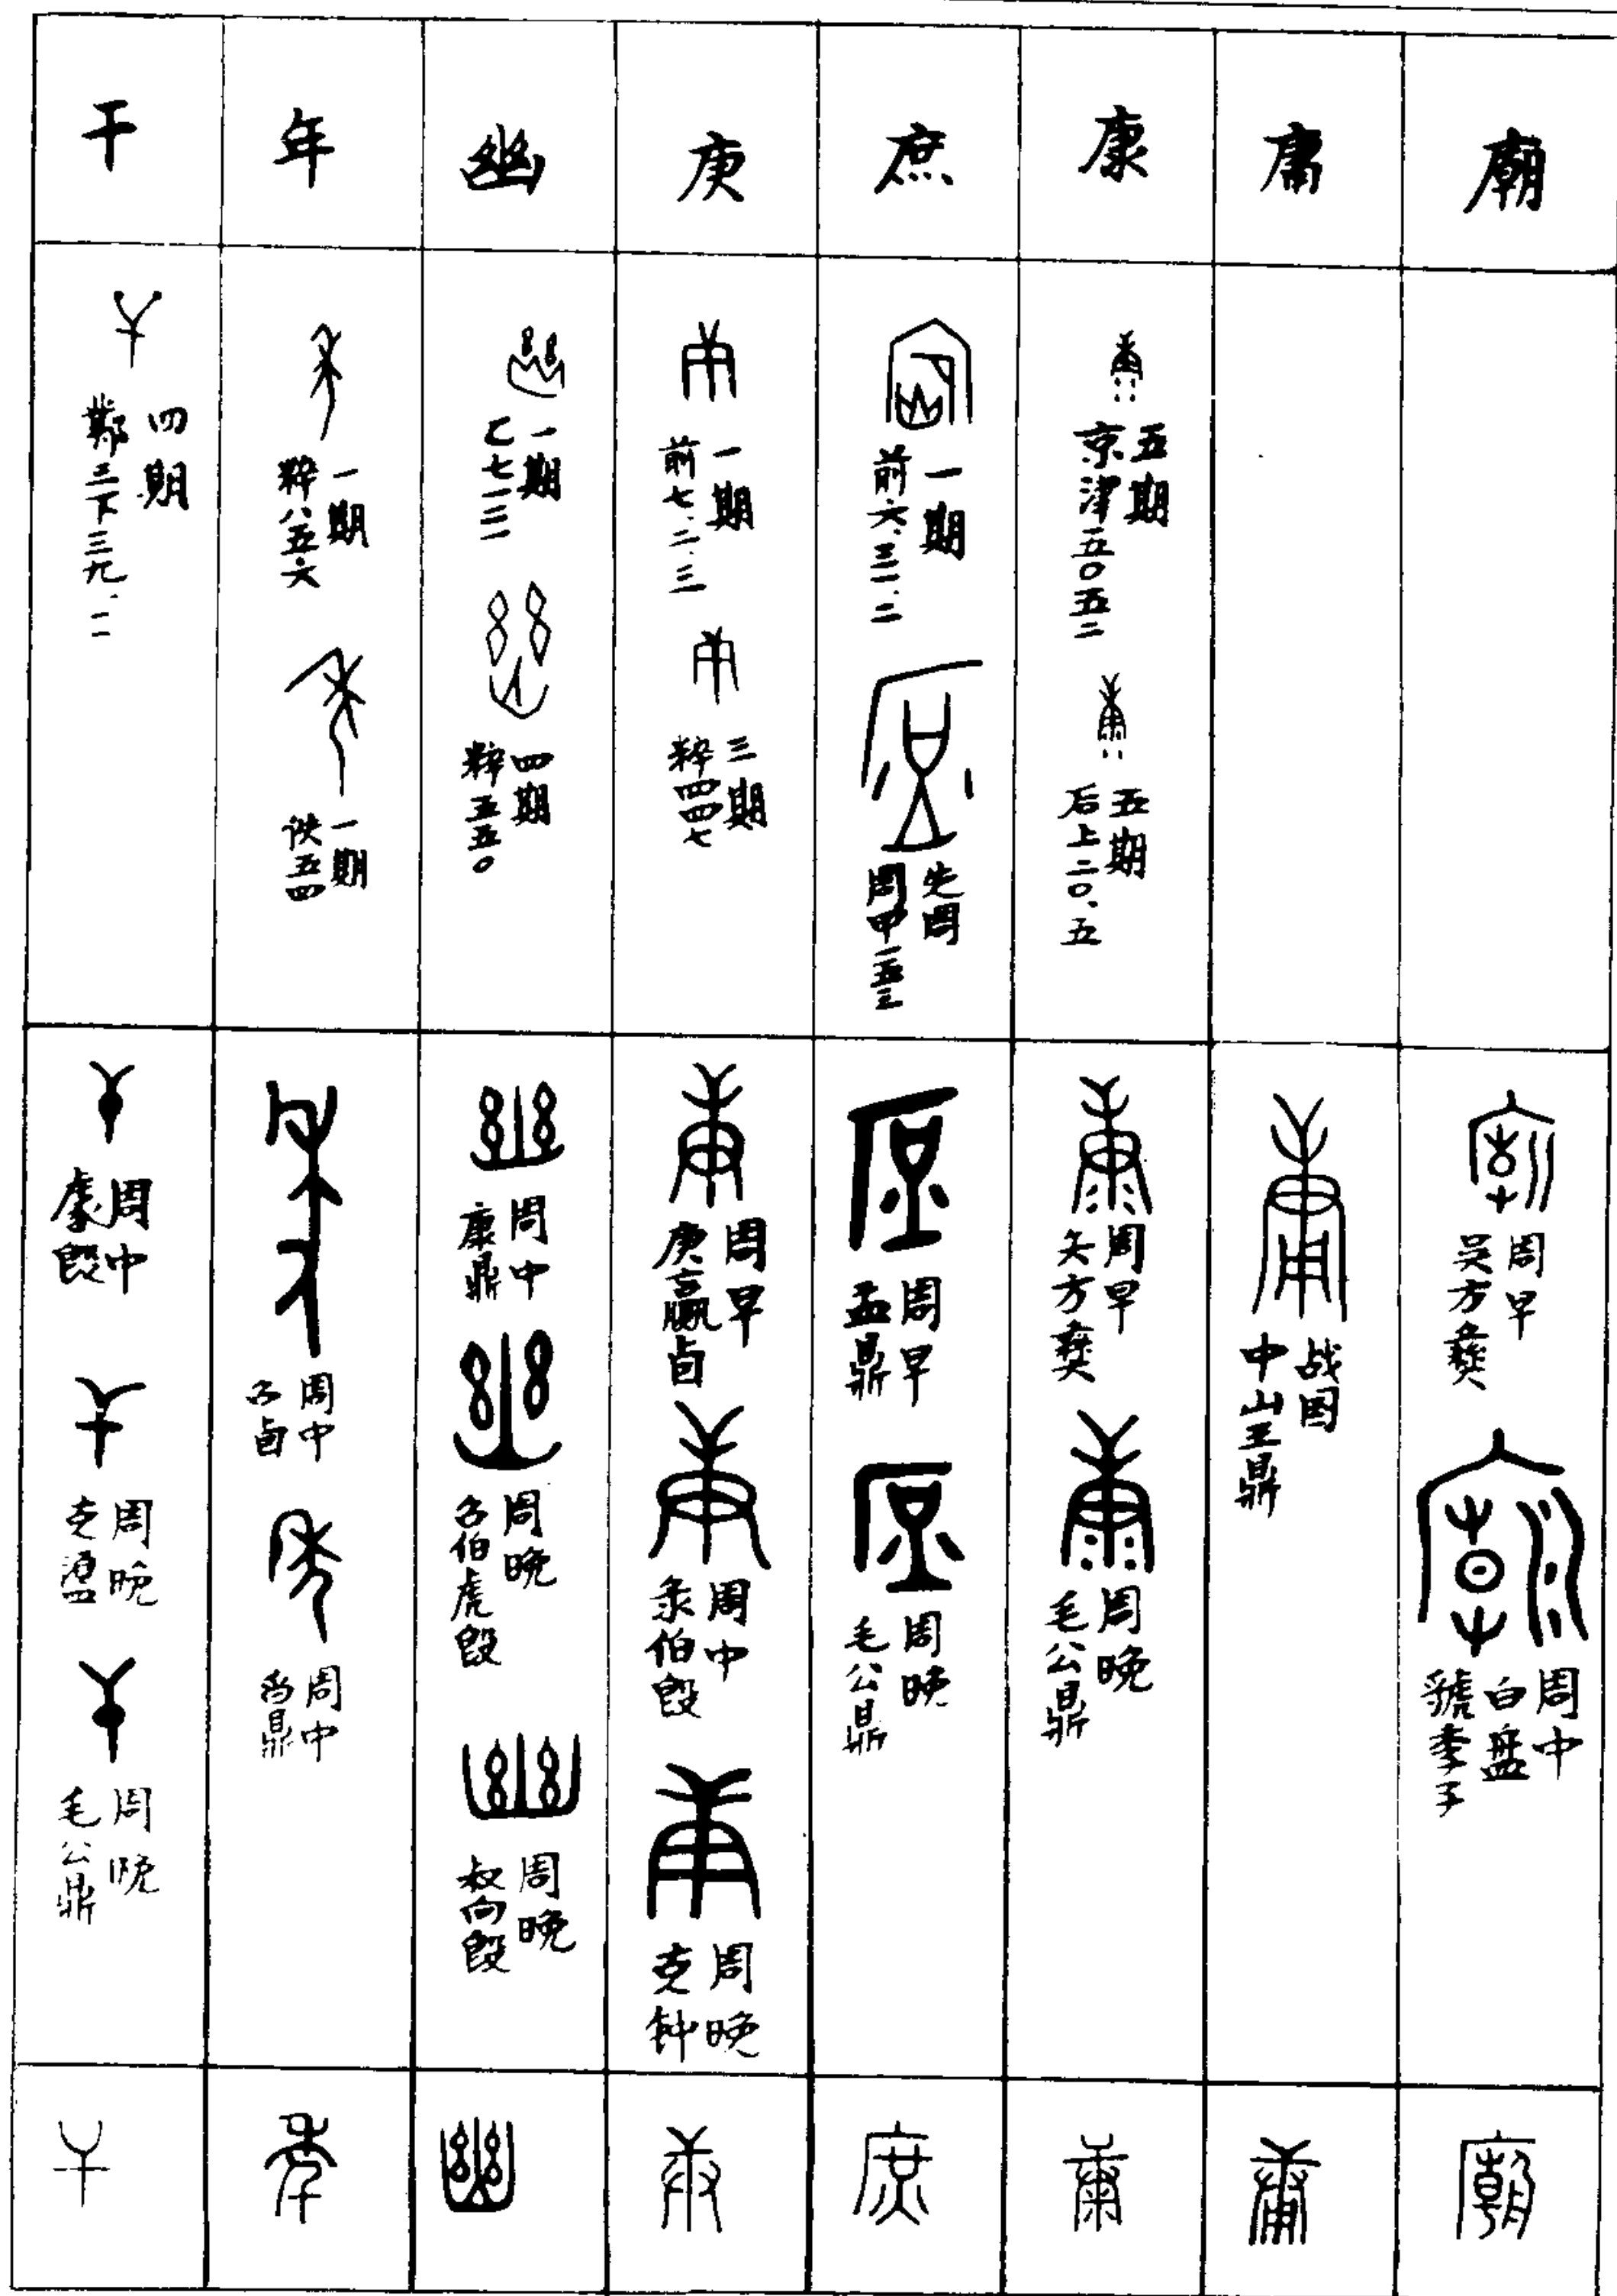 干 年 幽 庚 庶 康 庸 廟
四期
鄴三下三九.一一
一期
粹八五六
一期
佚五四
一期
乙七一二二
四期
粹五五〇
一期
前七.二.三
三期
粹四四七
一期
前六.三一.二
先周
周甲一五三
五期
京津五〇五二
五期
后上二〇.五
周中
㝬𣪘
周晚
克盨
周晚
毛公鼎
周中
召卣
周中
舀鼎
周中
康鼎
周晚
召伯虎𣪘
周晚
叔向𣪘
周早
庚嬴卣
周中
彔伯𣪘
周晚
克钟
周早
盂鼎
周晚
毛公鼎
周早
矢方彝
周晚
毛公鼎
战国
中山王鼎
周早
吴方彝
周中
虢季子
白盘